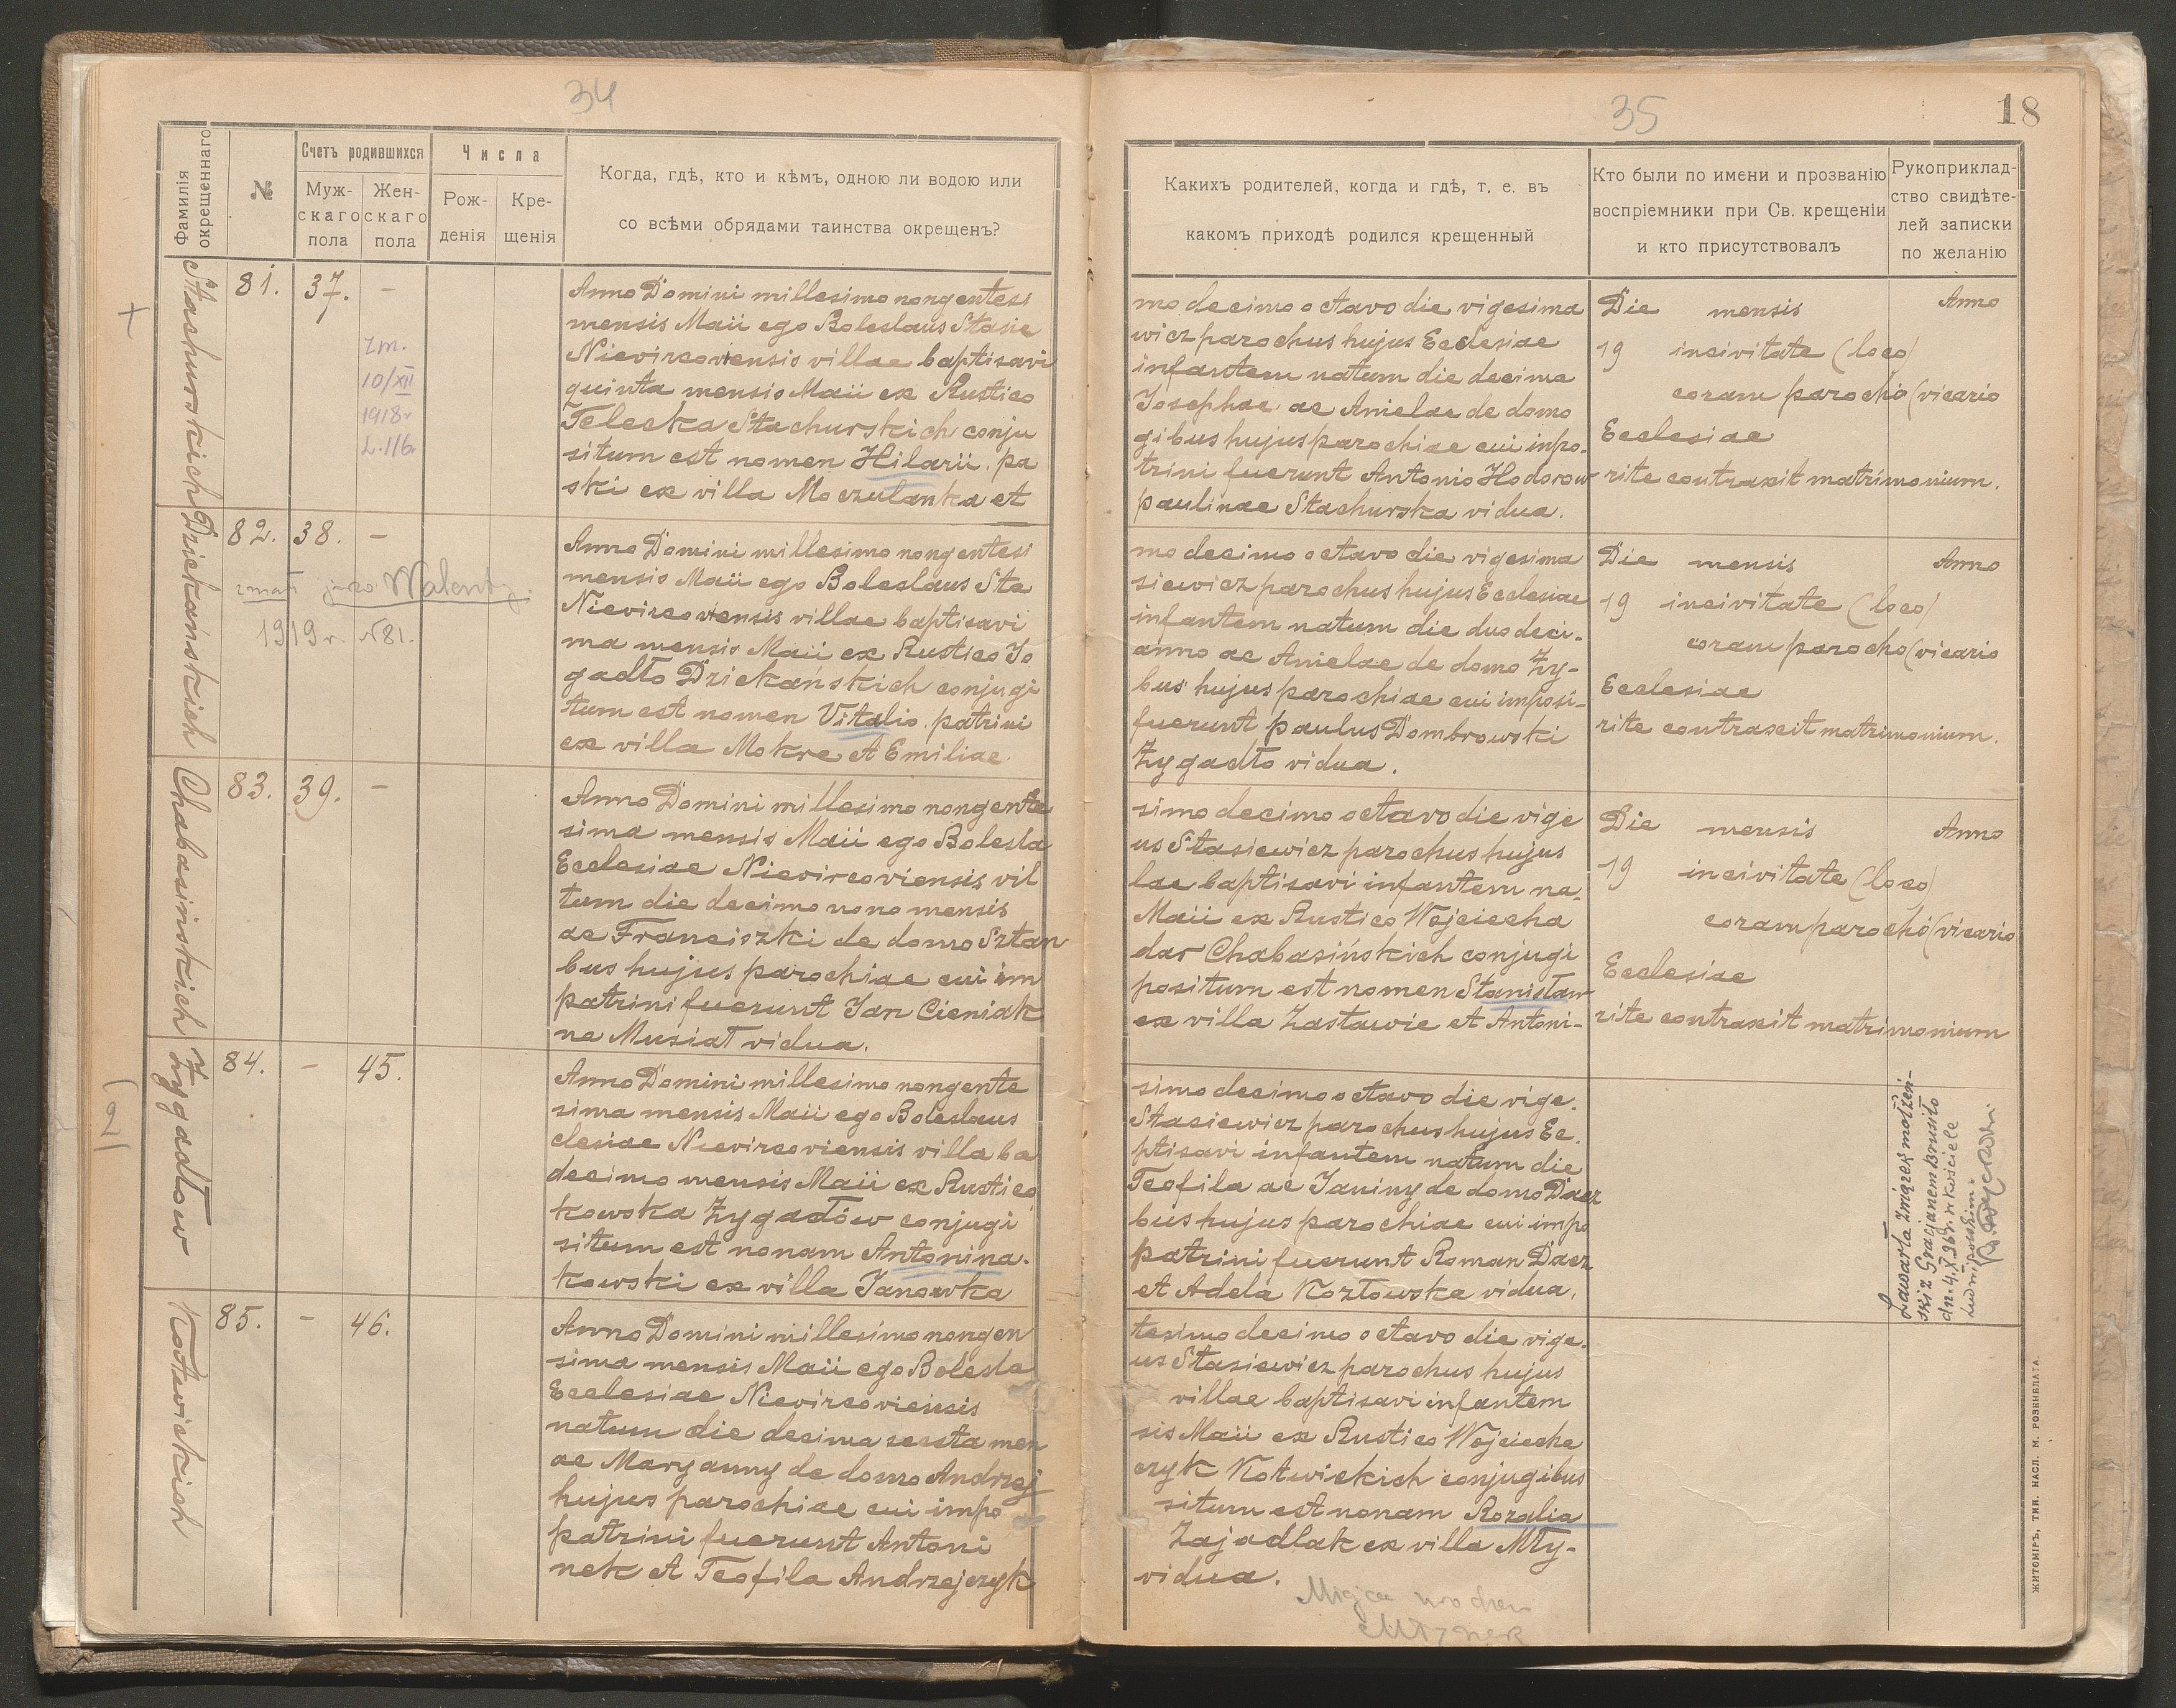 34
Фамилія окрещеннаго
№
Счетъ родившихся
Муж-
скаго
пола
Жен-
скаго
пола
Числа
Рож-
денія
Кре-
щенія
Когда, гдѣ, кто и кѣмъ, одною ли водою или
со всѣми обрядами таинства окрещенъ?
Stachurskich
81. 37. –
zm.
10/XII
1918 r
L. 116.
Anno Domini millesimo nongentesi
mensis Maii ego Boleslaus Stasie
Nievircoviensis villae baptisavi
quinta mensis Maii ex Rustico
Telecka Stachurskich conju
situm est nomen Hilarii. pa
ski ex villa Moczulanka et
Dziekańskich
82. 38. –
zmarł jako Walenty.
1919 r. N 81.
Anno Domini millesimo nongentesi
mensis Maii ego Boleslaus Sta
Nievircoviensis villae baptisavi
ma mensis Maii ex Rustico Jo
gadło Dziekanskich conjugi
tum est nomen Vitalio. patrini
ex villa Mokre et Emiliae
Chabasinskich
83. 39. –
Anno Domini millesimo nongente
sima mensis Maii ego Bolesla
Ecclesiae Nievircoviensis vil
tum die decimo nono mensis
ac Franciszki de domo Sztan
bus hujus parochiae cui im
patrini fuerunt Jan Cieniak
na Musiał vidua.
Zygadłow
2
84. – 45.
Anno Domini millesimo nongente
sima mensis Maii ego Boleslaus
clesiae Nievircoviensis villa ba
decimo mensis Maii ex Rustico
kowska Zygadłów conjugi
situm est nonam Antonina.
kowski ex villa Janowka
Kotwickich
85. – 46.
Anno Domini millesimo nongen
sima mensis Maii ego Bolesla
Ecclesiae Nievircoviensis
natum die decima sexta men
ac Maryanny de domo Andrzej
hujus parochiae cui impo
patrini fuerunt Antoni
nek et Teofila Andrzejczyk
35
18
Какихъ родителей, когда и гдѣ, т. е. въ
какомъ приходѣ родился крещенный
Кто были по имени и прозванію
воспріемники при Св. крещеніи
и кто присутствовалъ
Рукоприклад-
ство свидѣте-
лей записки
по желанію
mo decimo octavo die vigesima
wicz parochus hujus Ecclesiae
infantem natum die decima
Josephae ac Anielae de domo
gibus hujus parochiae cui inpo.
trini fuerunt Antonio Hodorow
paulinae Stachurska vidua.
Die mensis Anno
19 in civitate (loco)
coram parocho (vicario
Ecclesiae
rite contraxit matrimonium.
mo decimo octavo die vigesima
siewicz parochus hujus Ecclesiae
infantem natum die duodeci-
anno ac Anielae de domo Zy-
bus hujus parochiae cui imposi-
fuerunt paulus Dombrowski
Zygadło vidua.
Die mensis Anno
19 in civitate (loco)
coram parocho (vicario
Ecclesiae
rite contraxit matrimonium.
simo decimo octavo die vige
us Stasiewicz parochus hujus
lae baptisavi infantem na.
Maii ex Rustico Wojciecha
dar Chabasińskich conjugi
positum est nomen Stanisław
ex villa Zastawie et Antoni-
Die mensis Anno
19 in civitate (loco)
coram parocho (vicario
Ecclesiae
rite contraxit matrimonium
simo decimo octavo die vige.
Stasiewicz parochus hujus Ec.
ptisavi infantem natum die
Teofila ac Janiny de domo Dacz
bus hujus parochiae cui impo
patrini fuerunt Roman Dacz
et Adela Kozłowska vidua.
Zawarła związek małżeń-
ski z Gracjanem
dn. 4.X.36 r. w kościele
tesimo decimo octavo die vige.
us Stasiewicz parochus hujus
villae baptisavi infantem
sis Maii ex Rustico Wojciecha
czyk Kotwickich conjugibus
situm est nonam Rozalia
Zajadlak ex villa Mły-
vidua.
Młynek
ЖИТОМІРЪ, ТИП. НАСЛ. М. РОЗЕНБЛАТА.